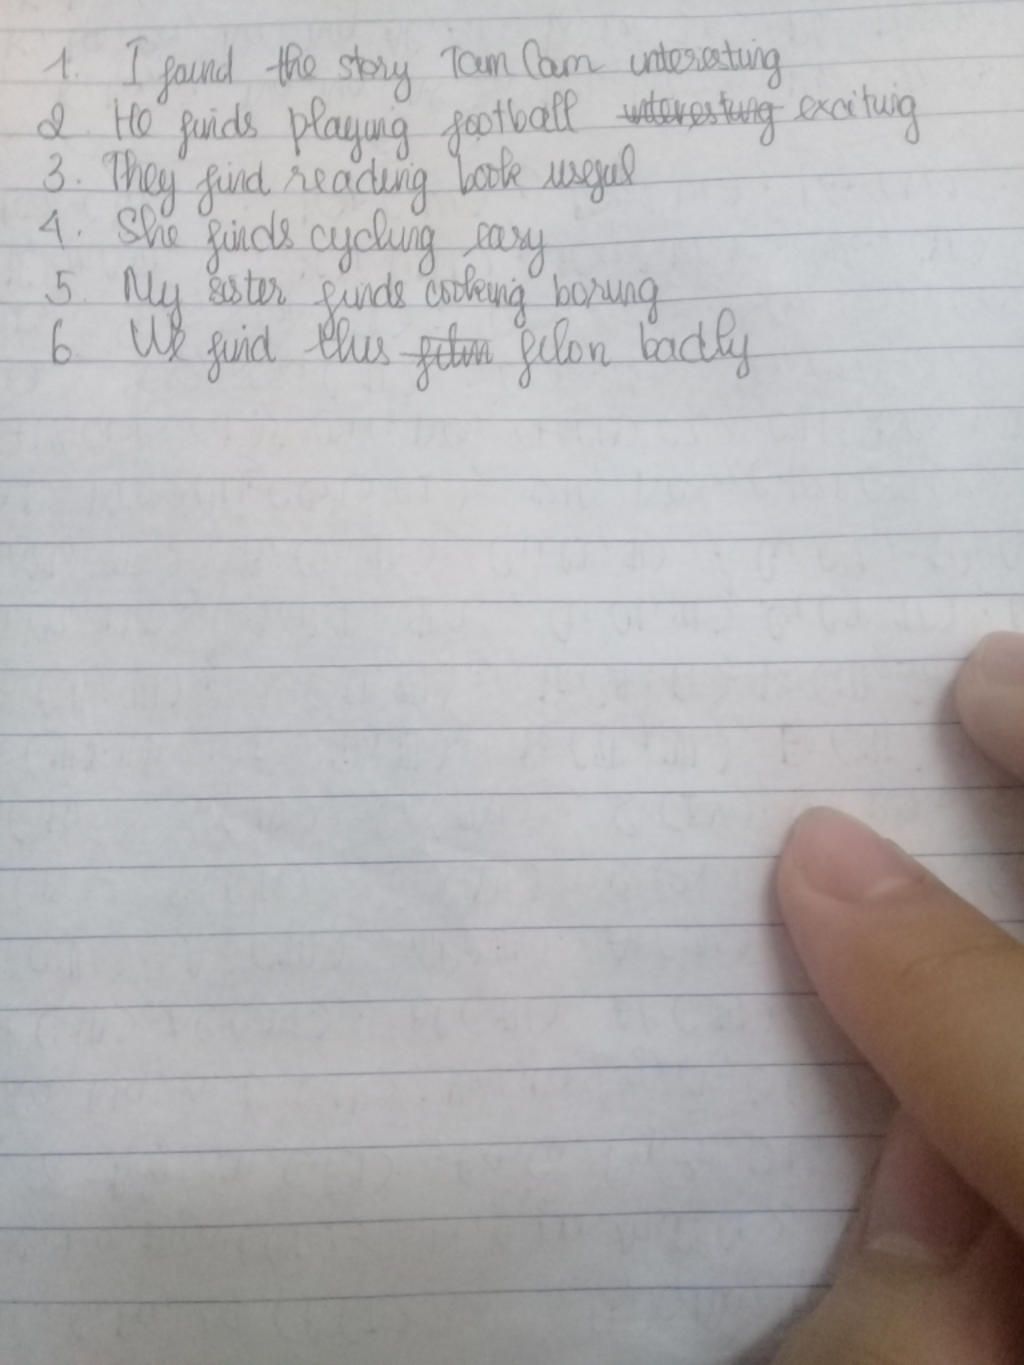 1. I found the story Tam Cam interesting
2 He finds playing football interesting exciting
3. They find reading book useful
4. She finds cycling easy
5. My sister finds cooking boring
6 We find this film filon badly